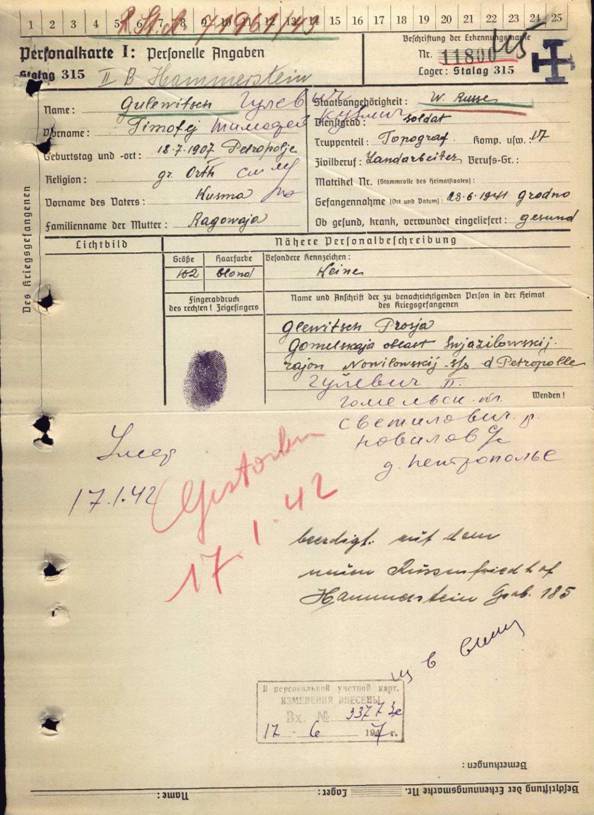 1 2 3 4 5 6 7 8 9 10 11 12 13 14 15 16 17 18 19 20 21 22 23 24 25
Personalkarte I: Personelle Angaben
Stalag 315
II B Hammerstein
Beschriftung der Erkennungsmarke
Nr. 11800
Lager: Stalag 315
Des Kriegsgefangenen
Name: Gulewitsch Гулевич
Vorname: Timofej Тимофей Кузьмич
Geburtstag und -ort: 18.7.1907 Petropolje
Religion: gr. Orth
Vorname des Vaters: Kusma
Familienname der Mutter: Ragowaja
Staatsangehörigkeit: W. Russe
Dienstgrad: soldat
Truppenteil: Topograf Komp. usw.: 17
Zivilberuf: Landarbeiter Berufs-Gr.:
Matrikel Nr. (Stammrolle des Heimatstaates):
Gefangennahme (Ort und Datum): 23.6.1941 grodno
Ob gesund, krank, verwundet eingeliefert: gesund
Lichtbild
Nähere Personalbeschreibung
Größe Haarfarbe Besondere Kennzeichen:
162 blond Keine
Fingerabdruck
des rechten! Zeigefingers
Name und Anschrift der zu benachrichtigenden Person in der Heimat
des Kriegsgefangenen
Glewitsch Prosja
Gomelskaja oblast Swjazilowskij
rajon Nowilowskij s/s d Petropolle
Гулевич П.
Wenden!
Гомельск.
Светилович. р
Новилов с/с
д. Петрополье
Умер
17.1.42
Gestorben
17.1.42
beerdigt auf dem
neuen Russenfriedhof
Hammerstein Grab. 185
В персональной учетной карт.
ИЗМЕНЕНИЯ ВНЕСЕНЫ
Вх. №
17 6 194 г.
Bemerkungen:
Name: Lager: Beschriftung der Erkennungsmarke Nr.